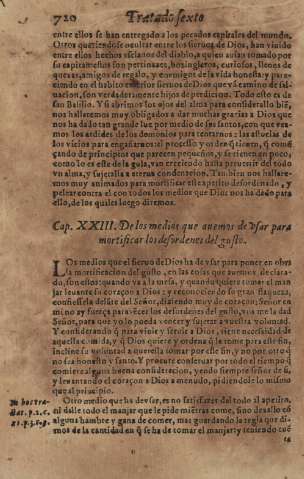 720 Tratado sexto
entre ellos se han entregado a los pecados carnales del mundo.
Otros queriendose ocultar entre los sieruos de Dios, han viuido
entre ellos hechos esclauos del diablo, a quien auian tomado por
su capitan estos son pertinaces, holgineros, curiosos, llenos de
quexas, amigos de regalo, y enemigos de la vida honesta: y pare-
ciendo en el habito sieruos de Dios que va camino de sal-
uacion, son verdaderamente hijos de perdicion. Todo esto es de
san Basilio. Y si abrimos los ojos del alma para considerallo bié,
nos hallaremos muy obligados a dar muchas gracias a Dios que
nos ha dado tan grande luz por medio de sus santos, con que vea-
mos los ardides de los demonios para tentarnos: las astucias de
los vicios para engañarnos: el processo y orden q̃ tienen, q̃ comé
çando de principios que parecen pequeños, y se tienen en poco,
como lo es este de la gula, van creciendo hasta peruertir de todo
vn alma, y sujetalla a eterna condenacion. Tambien nos hallare-
mos muy animados para mortificar este apetito desordenado, y
pelear contra el con todos los medios que Dios nos ha dado para
ello, de los quales luego diremos.
Cap. XXIII. De los medios que auemos de vsar para
mortificar los desordenes del gusto.
LOs medios que el sieruo de Dios ha de vsar para poner en obra
la mortificacion del gusto, en las cosas que auemos declara-
do, son estos: quando va a la mesa, y quando quiere tomar el man
jar leuante su coraçon a Dios: y reconociendo su gran flaqueza,
confiessela delante del Señor, diziendo muy de coraçon: Señor en
mi no ay fuerça para vécer los desordenes del gusto, vos me la dad
Señor, para que yo lo pueda vencer y sujetar a vuestra voluntad.
Y considerando q̃ para viuir y seruir a Dios, tiene necessidad de
aquella comida, y q̃ Dios quiere y ordena q̃ la tome para este fin,
incline su voluntad a quererla tomar por este fin, y no por otro q̃
no sea honesto y santo. Y procure conseruar por todo el tiempo q̃
comiere alguna buena consideracion, yendo siempre señor de si,
y leuantando el coraçon a Dios a menudo, pidiendole lo mismo
que al principio.
Otro medio que ha de vsar, es no satisfazer del todo al apetito,
ni dalle todo el manjar que le pide mientras come, sino dexallo có
alguna hambre y gana de comer, mas guardando la regla que di-
remos de la cantidad en q̃ se ha de tomar el manjar: y teniendo cué
ta